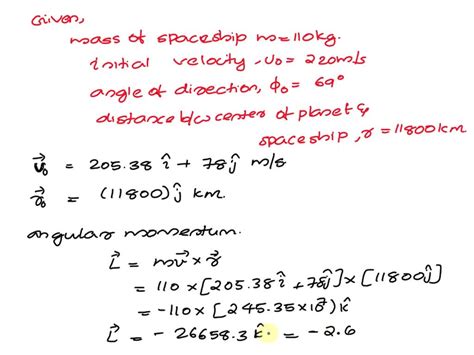 Given,
mass of spaceship m=110kg.
initial velocity, v₀ = 220m/s
angle of direction, ϕ₀ = 69°
distance b/w center of planet &
spaceship, r = 11800km
v⃗₀ = 205.38 î + 78 ĵ m/s
r⃗₀ = (11800) ĵ km.
angular momentum.
L⃗ = mv⃗ × r⃗
= 110 × [205.38 î + 78 ĵ] × [11800 ĵ]
= -110 × [245.35 × 10⁴] k̂
L⃗ = - 26658.3 k̂. = - 2.6